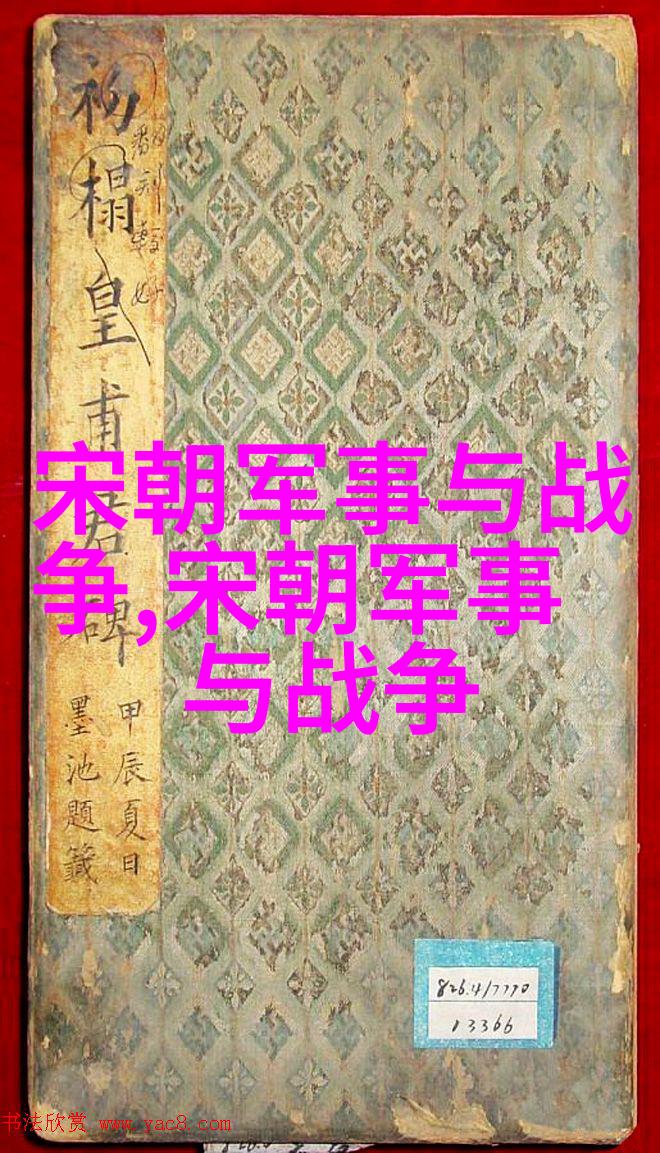 初榻皇甫君碑
甲辰夏日
墨池題籤
宋朝军事与战
争,宋朝军事
与战争
826.4/7770
13366
书法欣赏 www.yac8.com